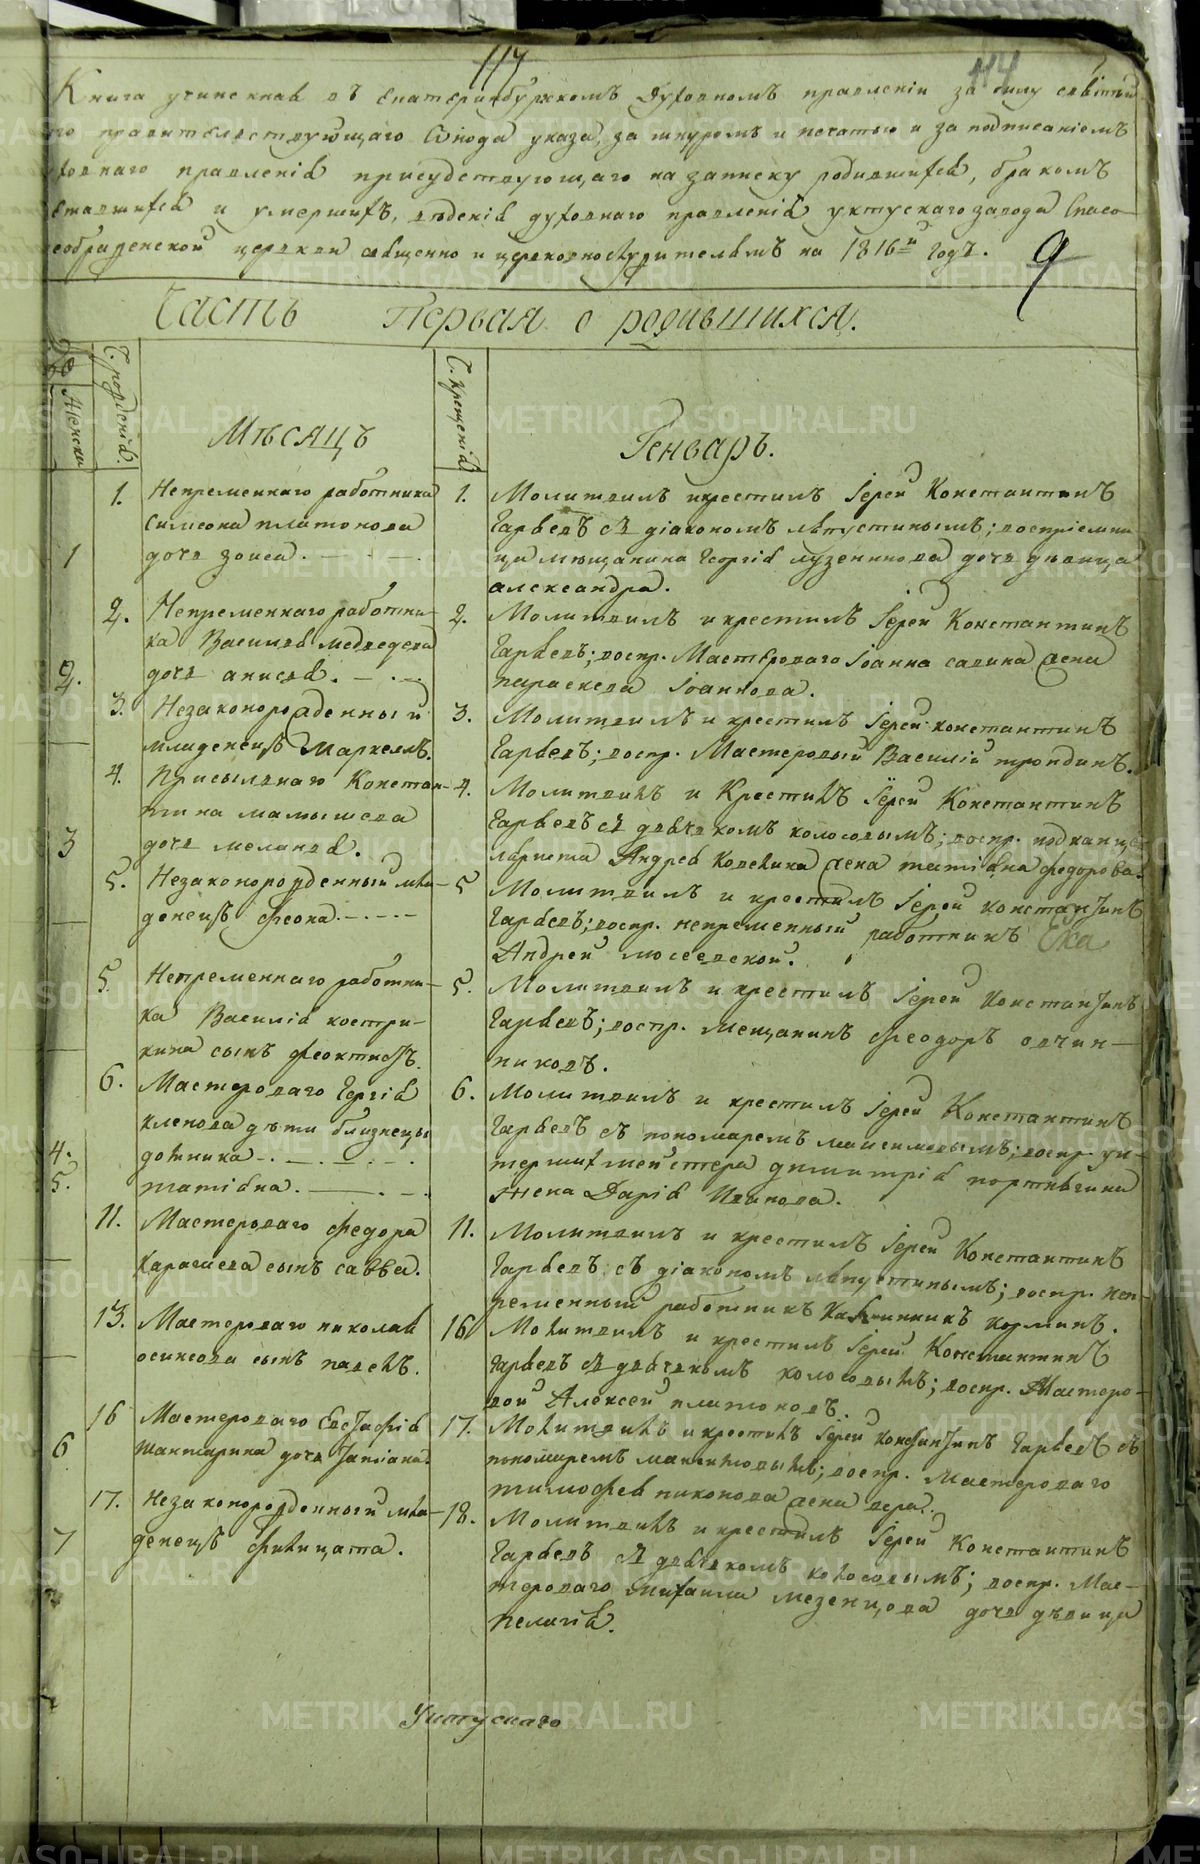 117
114
Книга учиненная въ Екатеринбургскомъ Духовномъ правленіи за силу святѣй
го правительствующаго Сѵнода указа, за шнуромъ и печатью и за подписаніемъ
ховнаго правленія присудствующаго на записку родившихся, бракомъ
ставшихся и умершихъ, вѣденія духовнаго правленія уктускаго завода Спасо
еображенской церкви священно и церковнослужителямъ на 1816й годъ.
9
Часть Первая о родившихся.
Женска
Ч. рожденія.
Мѣсяцъ
Ч. крещенія
Генварь.
1.
Непременнаго работника
Симеона платонова
1
дочь зоиса.
1.
Молитвилъ и крестилъ Іерей Константинъ
Гарьевъ съ діакономъ лѣпустинымъ; воспріемни
ца мѣщанина Георгія лузенинова дочь дѣвица
александра.
2.
Непременнаго работни-
ка Василья медведева
2.
дочь анисья.
2.
Молитвилъ и крестилъ Іерей Константинъ
Гарьевъ; воспр. Мастероваго Іоанна савина жена
параскева Іоаннова.
3.
Незаконорожденный
младенецъ Маркелъ.
3.
Молитвилъ и крестилъ Іерей константинъ
Гарьевъ; воспр. Мастеровый Василій трондинъ.
4.
Присыльнаго Констан-
тина мамышева
3
дочь меланья.
4.
Молитвилъ и Крестилъ Іерей Константинъ
Гарьевъ съ дьячкомъ колосовымъ; воспр. подканце
ляриста Андрея Ковекина жена татіяна федорова.
5.
Незаконорожденный мла-
денецъ феона.
5
Молитвилъ и крестилъ Іерей константинъ
Гарьевъ; воспр. непременный работникъ
Ека
Андрей мосеевской.
5.
Непременнаго работни-
ка Василія костри-
кина сынъ феоктистъ.
5.
Молитвилъ и крестилъ Іерей константинъ
Гарьевъ; воспр. мещанинъ феодоръ овчин-
никовъ.
6.
Мастероваго Георгія
кленова дѣти близнецы
4.
домника.
5.
татіяна.
6.
Молитвилъ и крестилъ Іерей Константинъ
Гарьевъ съ пономаремъ максимовымъ; воспр. ун-
тершихмейстера димитрія портнягина
жена Дарія Иванова.
11.
Мастероваго федора
Карагаева сынъ савва.
11.
Молитвилъ и крестилъ Іерей Константинъ
Гарьевъ съ діакономъ лѣпустинымъ; воспр. неп-
ременный работникъ Калинникъ корминъ.
13.
Мастероваго николая
осинсова сынъ павелъ.
16
Молитвилъ и крестилъ Іерей Константинъ
Гарьевъ съ дьячкомъ колосовымъ; воспр. Мастеро-
вой Алексей платоновъ.
16
Мастероваго Евстафія
6
шантарина дочь Татіана.
17.
Молитвилъ и крестилъ Іерей константинъ Гарьевъ съ
пономаремъ максимовымъ; воспр. Мастероваго
тимофея никонова жена вера.
17.
Незаконорожденный мла-
7
денецъ филицата.
18.
Молитвилъ и крестилъ Іерей Константинъ
Гарьевъ съ дьячкомъ колосовымъ; воспр. Мас-
тероваго михаила мезенцова дочь дѣвица
пелагія.
Уктускаго
METRIKI.GASO-URAL.RU